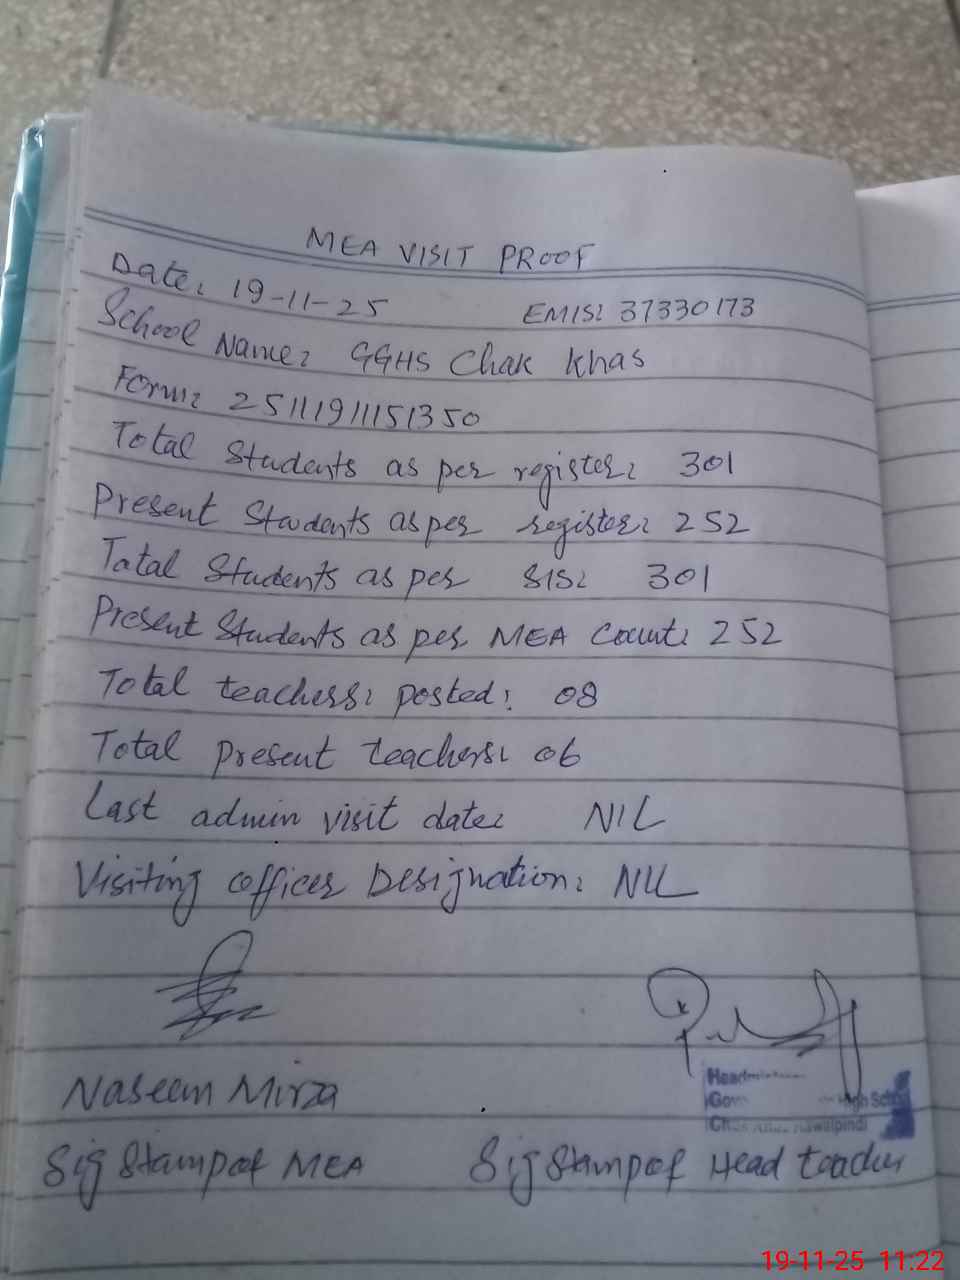 MEA VISIT PROOF
Date: 19-11-25 EMIS: 37330173
School Name: GGHS Chak Khas
Form: 25111911151350
Total Students as per register: 301
Present Students as per register: 252
Tatal Students as per SIS: 301
Present Students as per MEA Count: 252
Total teachers: posted: 08
Total present teachers: 06
Last admin visit date: NIL
Visiting officer Designation: NIL
Naseem Mirza
High School
Rawalpindi
Sig Stamp of MEA Sig Stamp of Head teacher
19-11-25 11:22